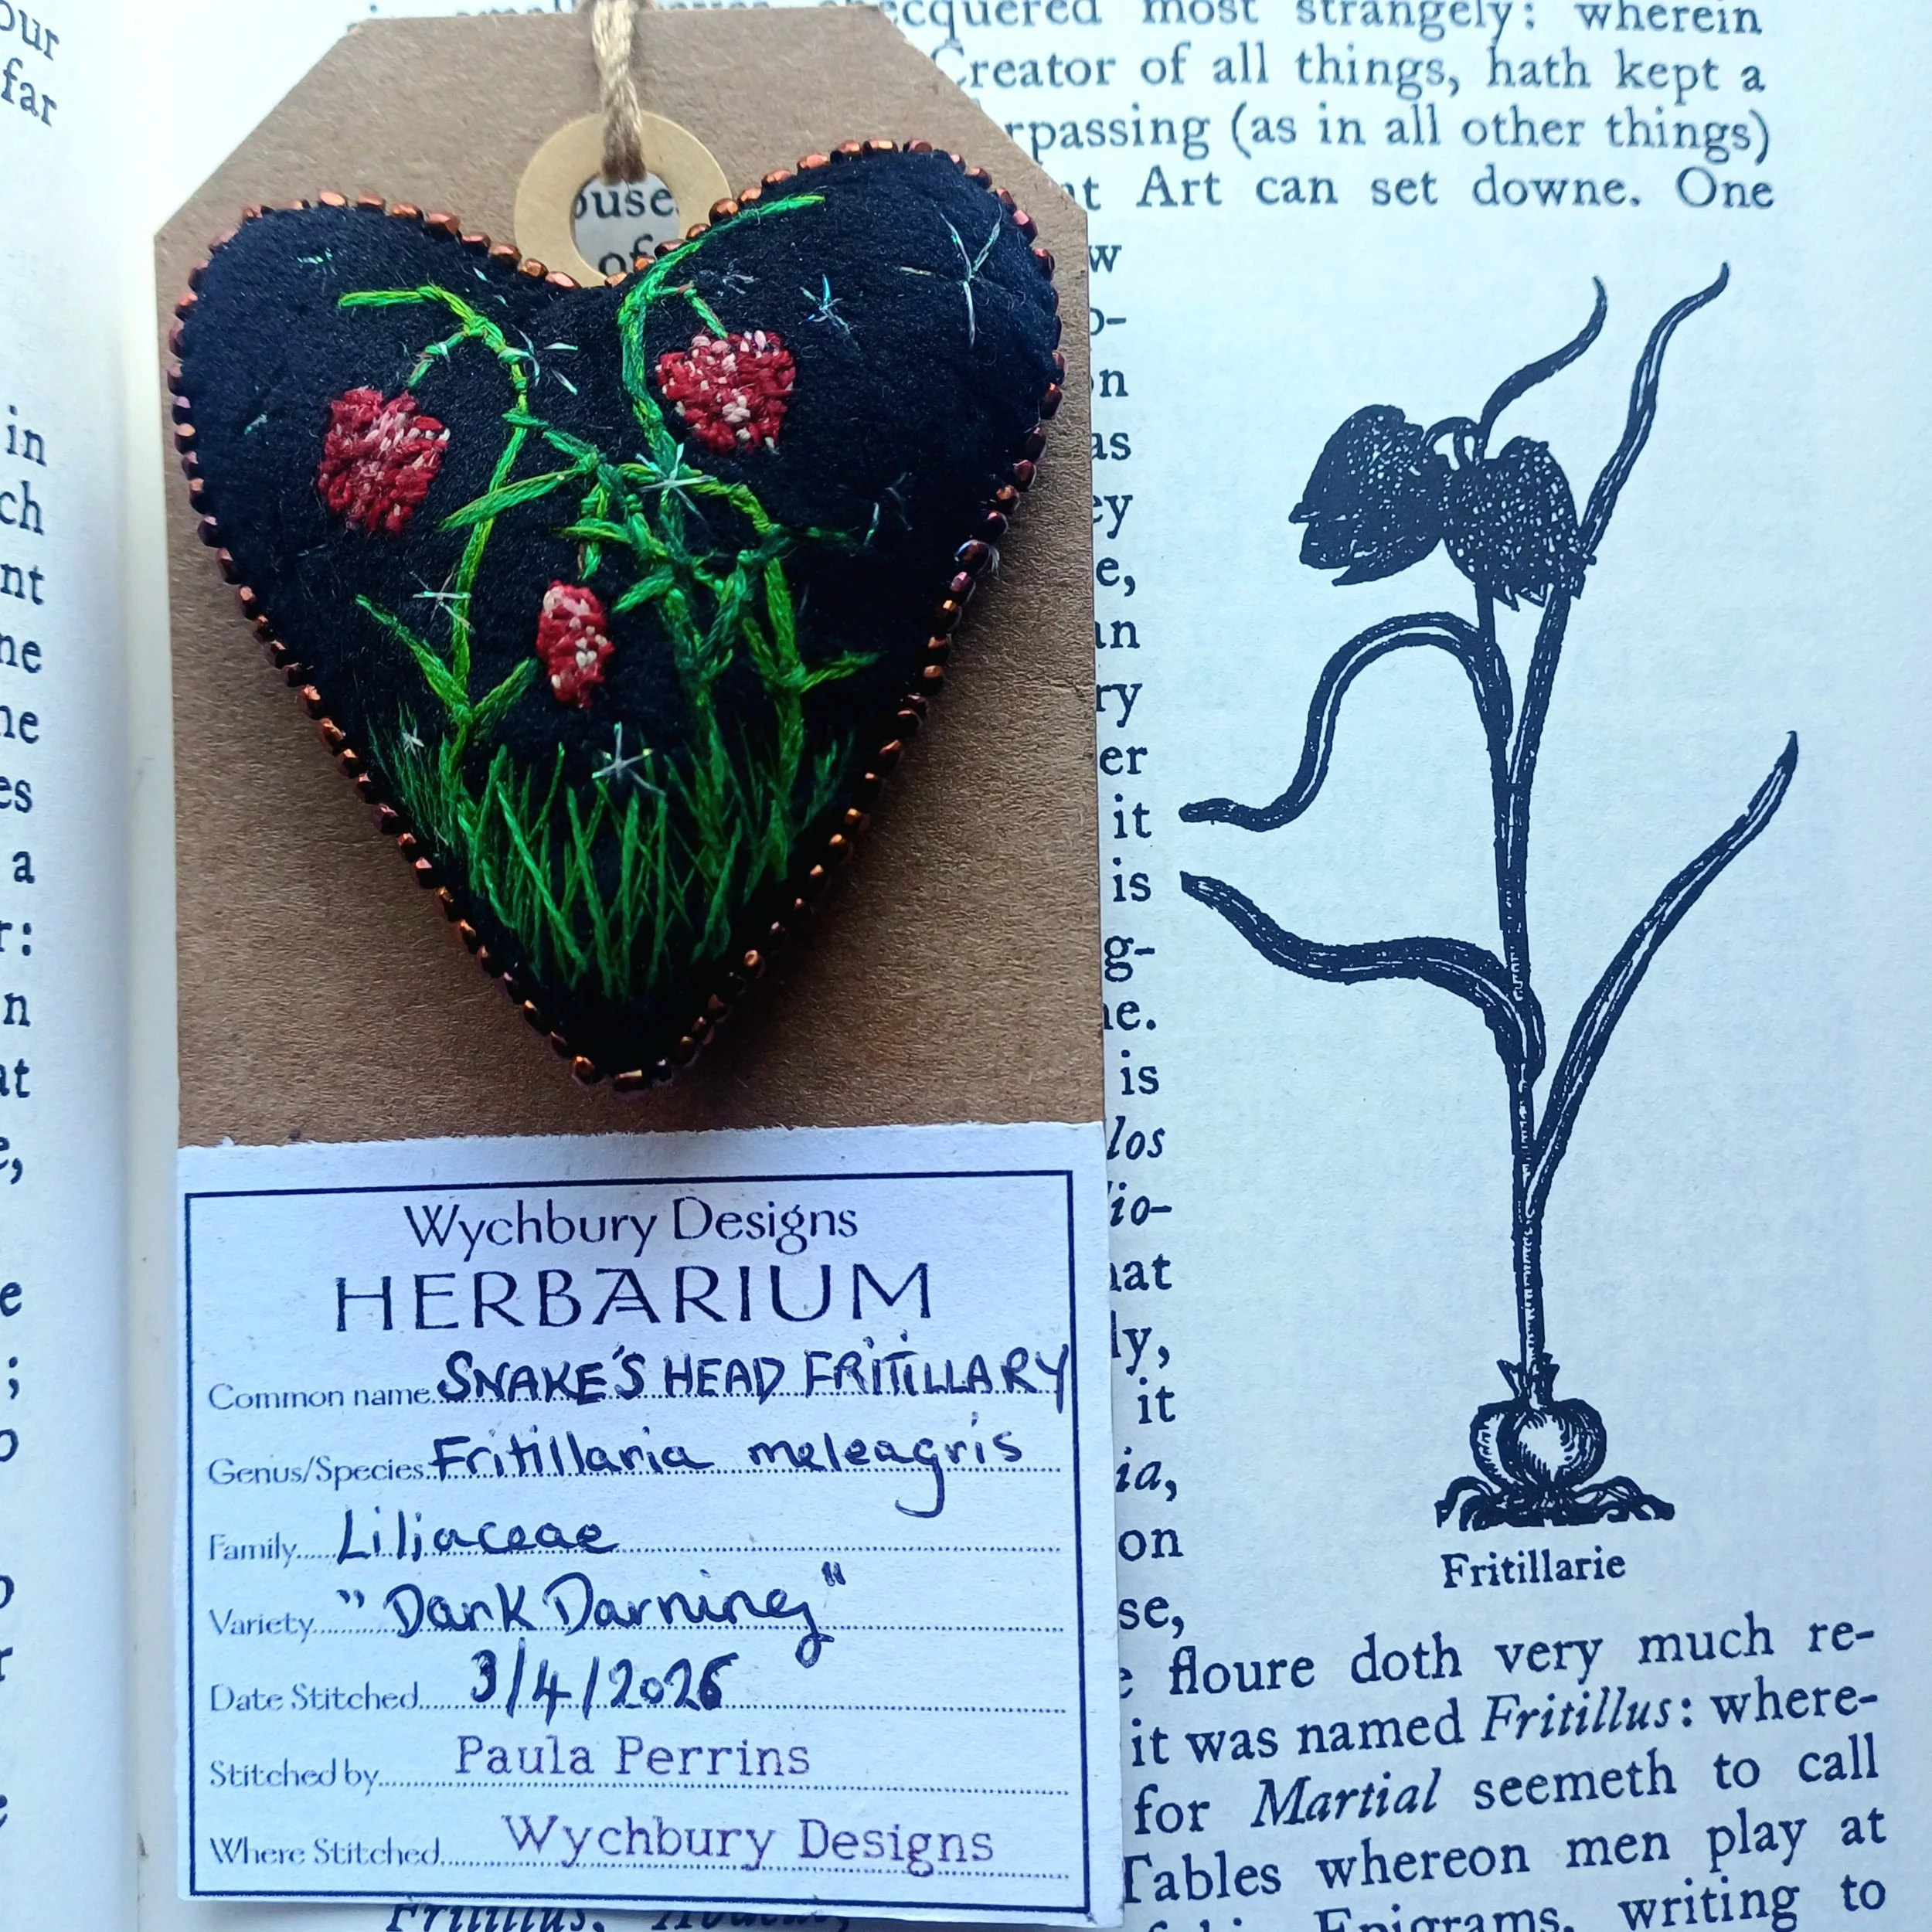 our
far
in
ch
nt
ne
ne
es
a
r:
n
at
e,
e
;
checquered most strangely: wherein
Creator of all things, hath kept a
rpassing (as in all other things)
nt Art can set downe. One
ouse
of
w
o-
on
as
ey
e,
an
ry
er
it
is
g-
ne.
is
los
io-
hat
ly,
it
ia,
on
se,
Fritillarie
e floure doth very much re-
it was named Fritillus: where-
for Martial seemeth to call
Tables whereon men play at
Epigrams, writing to
Wychbury Designs
HERBARIUM
Common name SNAKE'S HEAD FRITILLARY
Genus/Species Fritillaria meleagris
Family Liliaceae
Variety "Dark Darning"
Date Stitched 3/4/2026
Stitched by Paula Perrins
Where Stitched Wychbury Designs